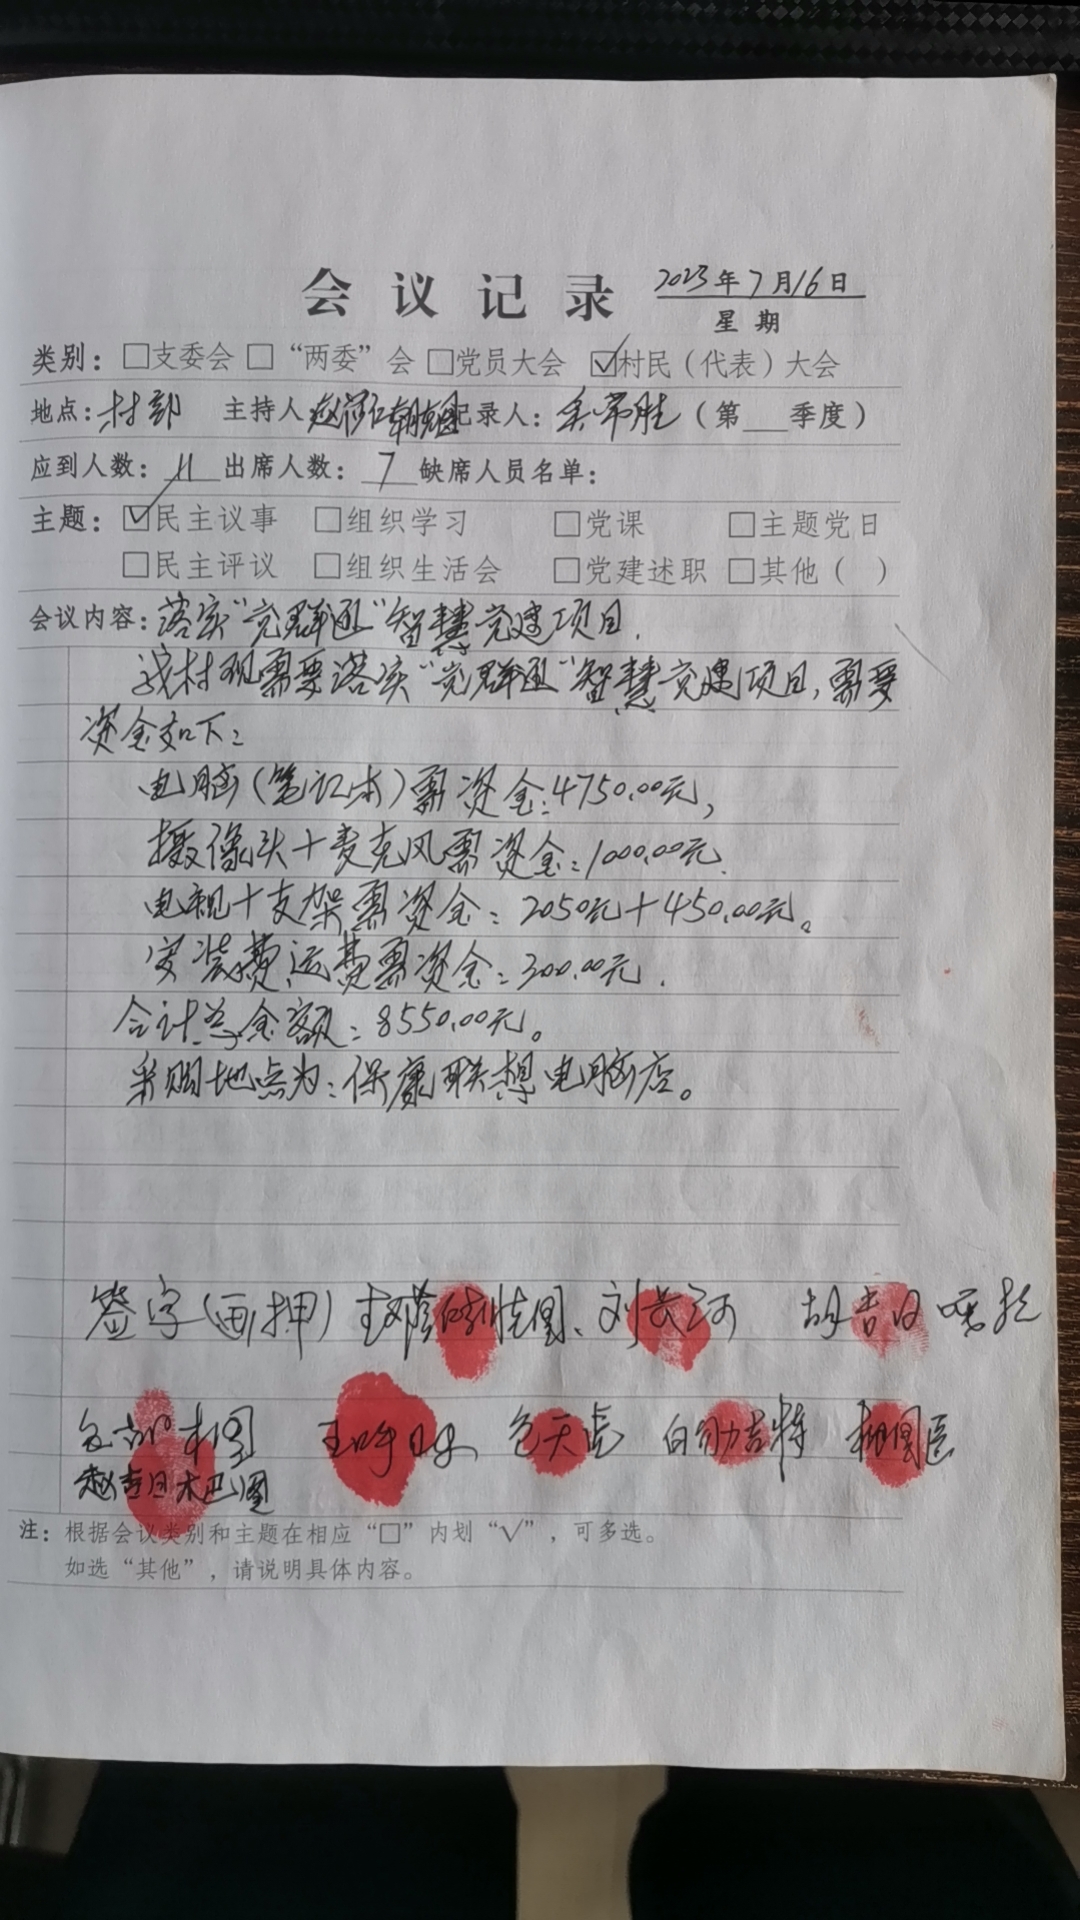 会议记录 2023年7月16日
星期
类别：□支委会 □“两委”会 □党员大会 ☑村民（代表）大会
地点：村部 主持人 记录人： （第___季度）
应到人数：11 出席人数：7 缺席人员名单：
主题：☑民主议事 □组织学习 □党课 □主题党日
□民主评议 □组织生活会 □党建述职 □其他（ ）
会议内容：落实“党群通”智慧党建项目.
我村现需要落实“党群通”智慧党建项目,需要
资金如下：
电脑（笔记本）需资金：4750.00元，
摄像头+麦克风需资金：1000.00元.
电视+支架需资金：2050元+450.00元。
安装费运费需资金：300.00元.
合计总金额：8550.00元。
采购地点为：保康联想电脑店。
签字（画押） 刘长河 胡吉日嘎拉
包天虎 白勿力吉特
赵吉日木巴图
注：根据会议类别和主题在相应“□”内划“√”，可多选。
如选“其他”，请说明具体内容。